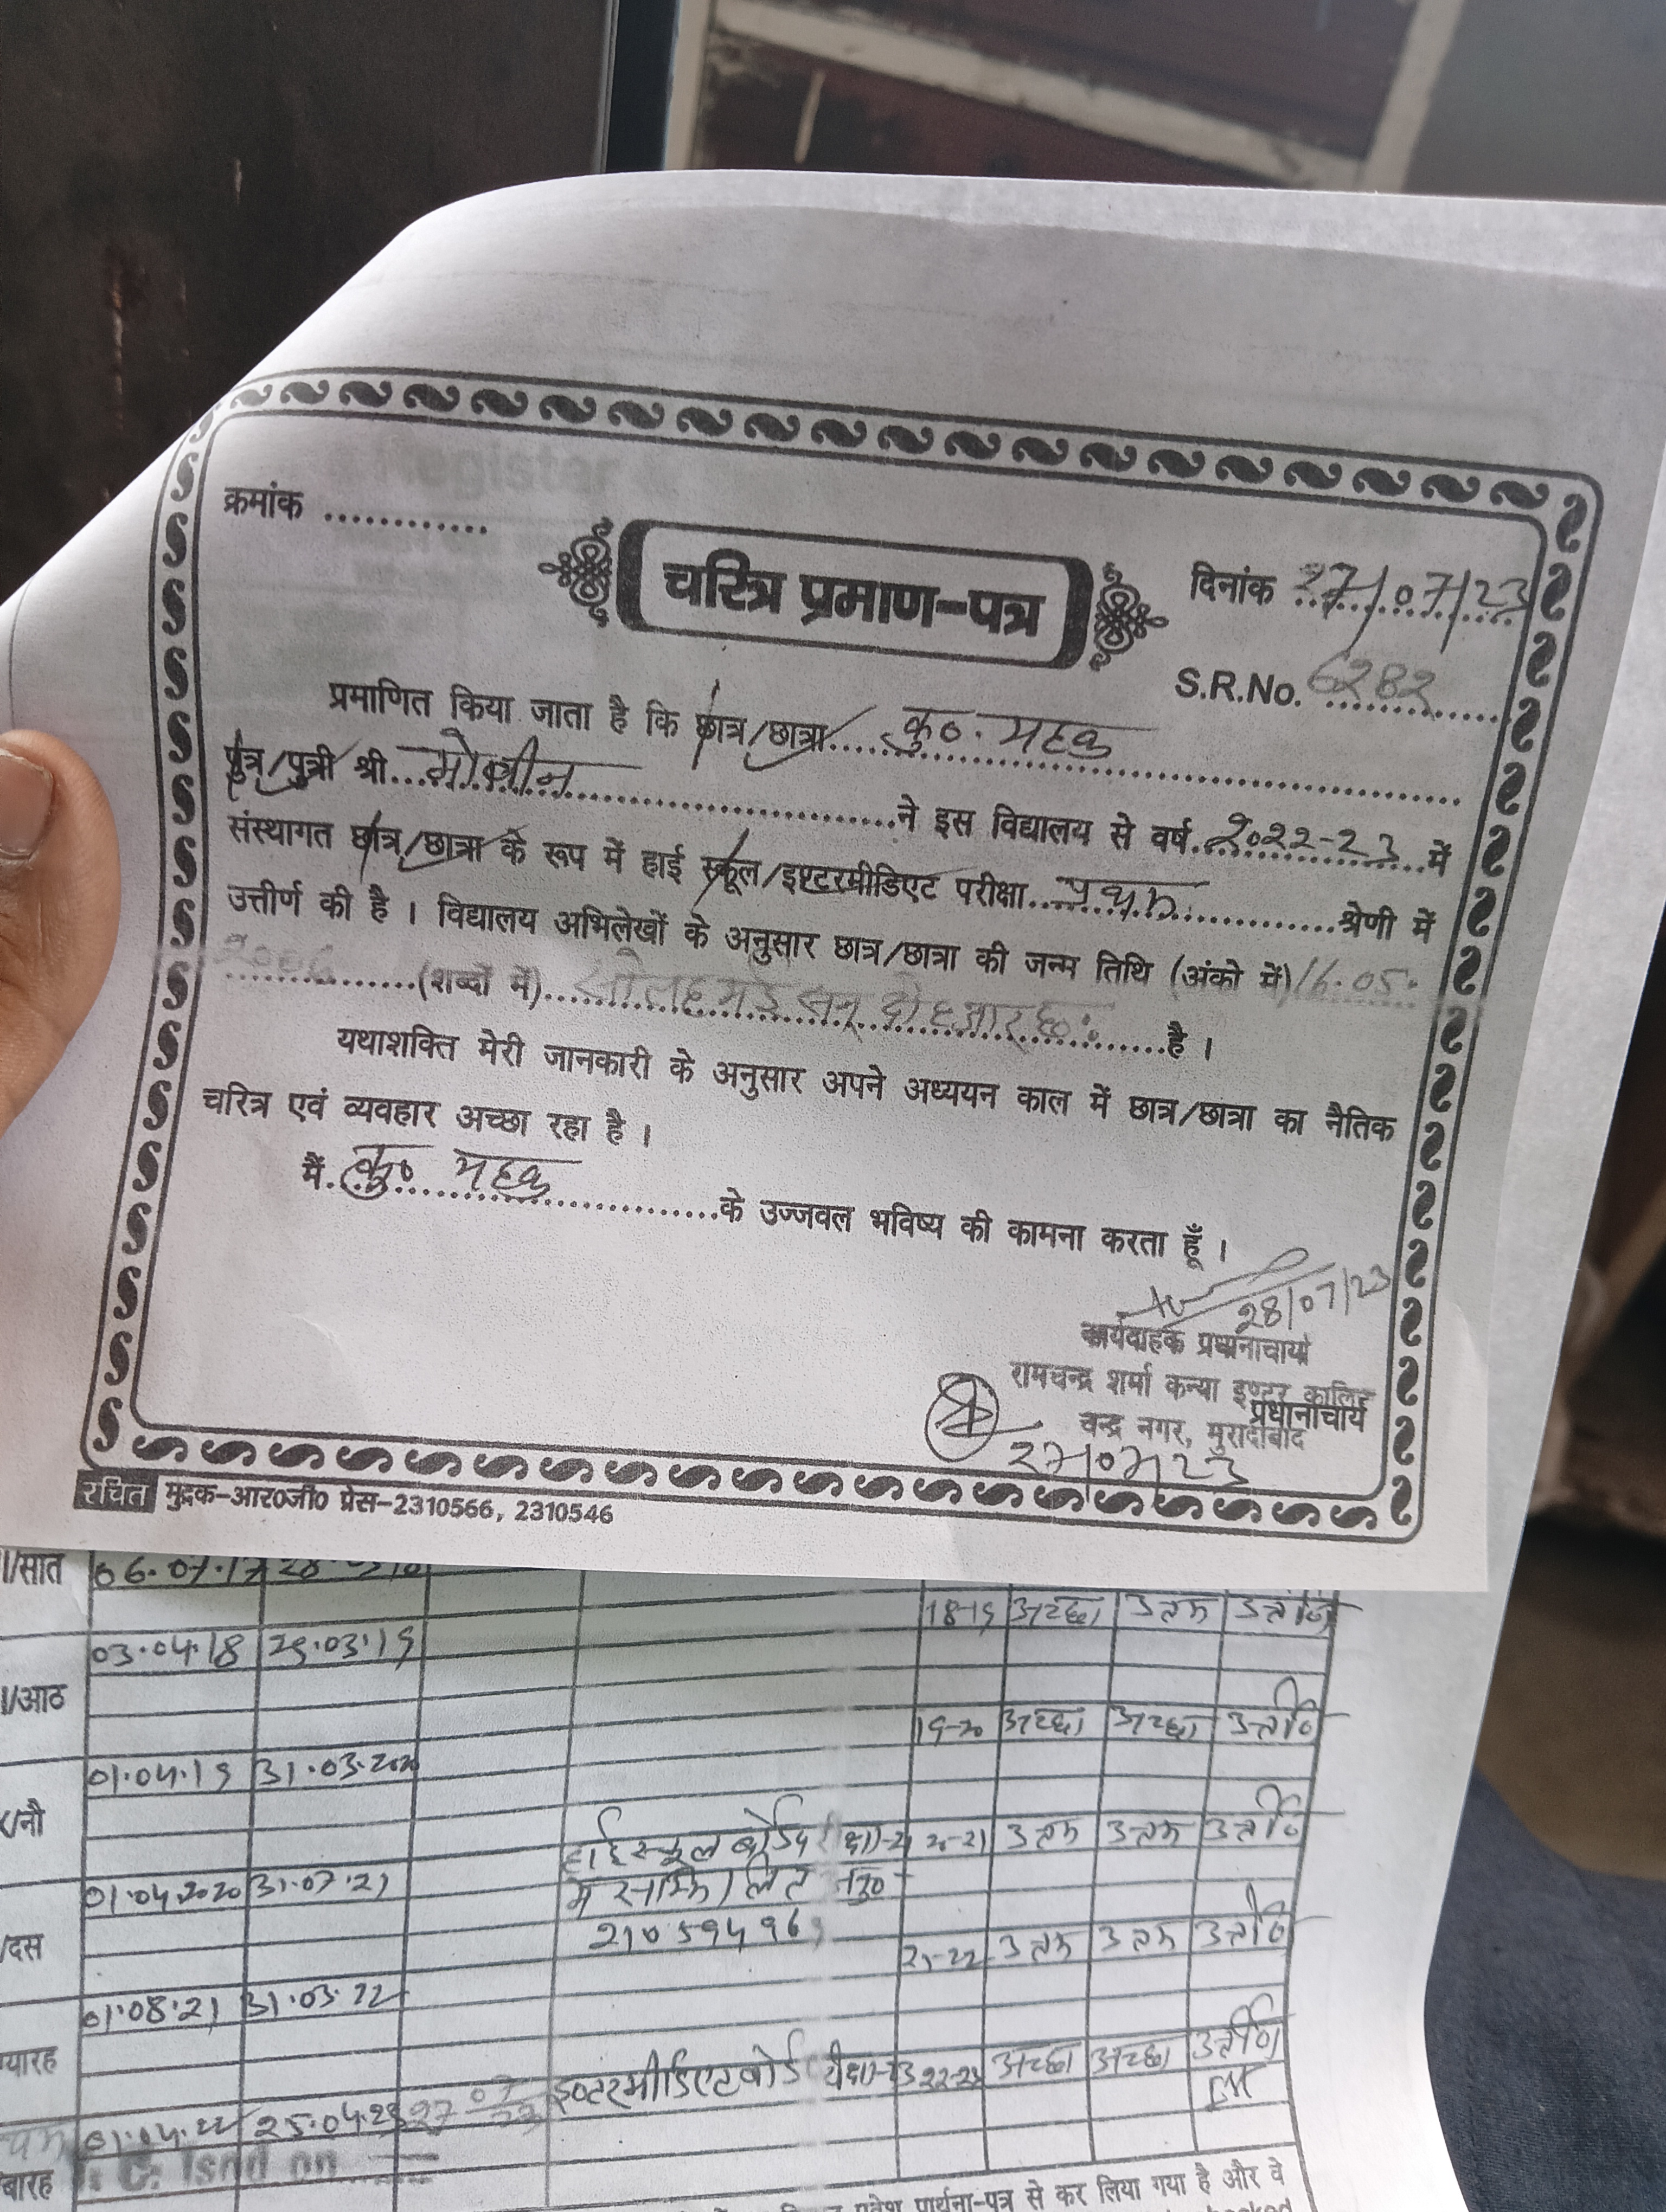 क्रमांक ............
चरित्र प्रमाण-पत्र
दिनांक 27/07/23
S.R.No. 6282
प्रमाणित किया जाता है कि छात्र/छात्रा..... कु०. महक
पुत्र/पुत्री श्री... मोबीन ...ने इस विद्यालय से वर्ष. 2022-23 ...में
संस्थागत छात्र/छात्रा के रूप में हाई स्कूल/इण्टरमीडिएट परीक्षा... प्रथम ...श्रेणी में
उत्तीर्ण की है । विद्यालय अभिलेखों के अनुसार छात्र/छात्रा की जन्म तिथि (अंको में) 16.05.
2006 ...(शब्दों में)... सोलह मई सन् दो हजार छः ...है ।
यथाशक्ति मेरी जानकारी के अनुसार अपने अध्ययन काल में छात्र/छात्रा का नैतिक
चरित्र एवं व्यवहार अच्छा रहा है ।
मैं. कु० महक ...के उज्जवल भविष्य की कामना करता हूँ ।
28/07/23
कार्यवाहक प्रधानाचार्या
रामचन्द्र शर्मा कन्या इण्टर कालिज
प्रधानाचार्य
चन्द्र नगर, मुरादाबाद
27/07/23
रचित मुद्रक-आर०जी० प्रेस-2310566, 2310546
/सात 06.07.17
18-19 अच्छा उत्तम उत्तीर्ण
03.04.18 29.03.19
/आठ
19-20 अच्छा अच्छा उत्तीर्ण
01.04.19 31.03.2020
/नौ
हाईस्कूल बोर्ड 20-21 उत्तम उत्तम उत्तीर्ण
01.04.2020 31.07.21 में सम्मिलित
/दस
21-22 उत्तम उत्तम उत्तीर्ण
01.08.21 31.03.22
ग्यारह
इण्टरमीडिएट बोर्ड 22-23 अच्छा अच्छा उत्तीर्ण
01.04.22 25.04.23 27
बारह
प्रवेश प्रार्थना-पत्र से कर लिया गया है और वे